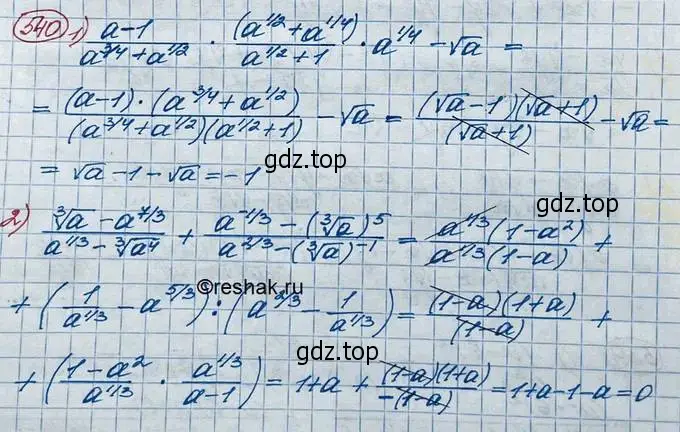 540 1) (a-1)/(a^{3/4}+a^{1/2}) · (a^{1/2}+a^{1/4})/(a^{1/2}+1) · a^{1/4} - √a =
= ((a-1)·(a^{3/4}+a^{1/2}))/((a^{3/4}+a^{1/2})(a^{1/2}+1)) - √a = ((√a-1)(√a+1))/(√a+1) - √a =
= √a - 1 - √a = -1
gdz.top
gdz.top
2) (∛a - a^{7/3})/(a^{1/3} - ∛a⁴) + (a^{-1/3} - (∛a)⁵)/(a^{2/3} - (∛a)^{-1}) = (a^{1/3}(1-a²))/(a^{1/3}(1-a)) +
©reshak.ru
+ (1/a^{1/3} - a^{5/3}) : (a^{2/3} - 1/a^{1/3}) = ((1-a)(1+a))/(1-a) +
gdz.top
+ ((1-a²)/a^{1/3} · a^{1/3}/(a-1)) = 1+a + ((1-a)(1+a))/(-(1-a)) = 1+a-1-a=0